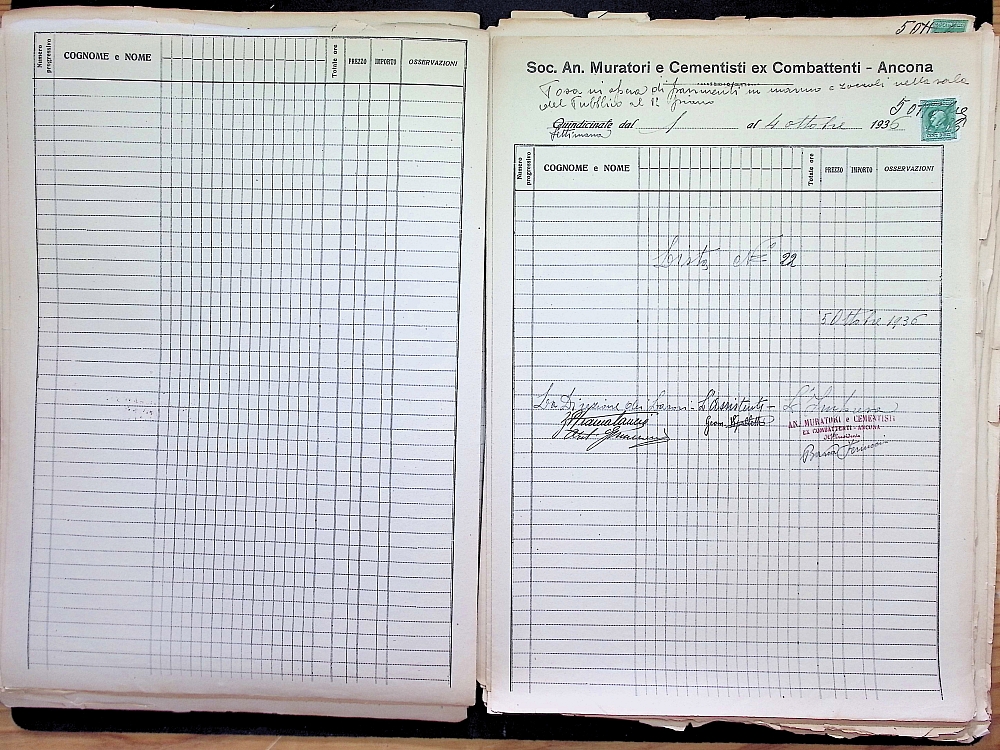 Numero progressivo
COGNOME e NOME
Totale ore
PREZZO
IMPORTO
OSSERVAZIONI
5 Ott
Soc. An. Muratori e Cementisti ex Combattenti - Ancona
Posa in opera di pavimenti in marmo e zoccoli nella sala
del Pubblico al 1° piano
5 Ottobre
Quindicinale dal / al 4 ottobre 1936
Settimana
Numero progressivo
COGNOME e NOME
Totale ore
PREZZO
IMPORTO
OSSERVAZIONI
Lista N° 22
5 Ottobre 1936
La Direzione dei Lavori - L'Assistente - L'Impresa
Geom.
AN. MURATORI e CEMENTISTI
EX COMBATTENTI - ANCONA
Il Presidente